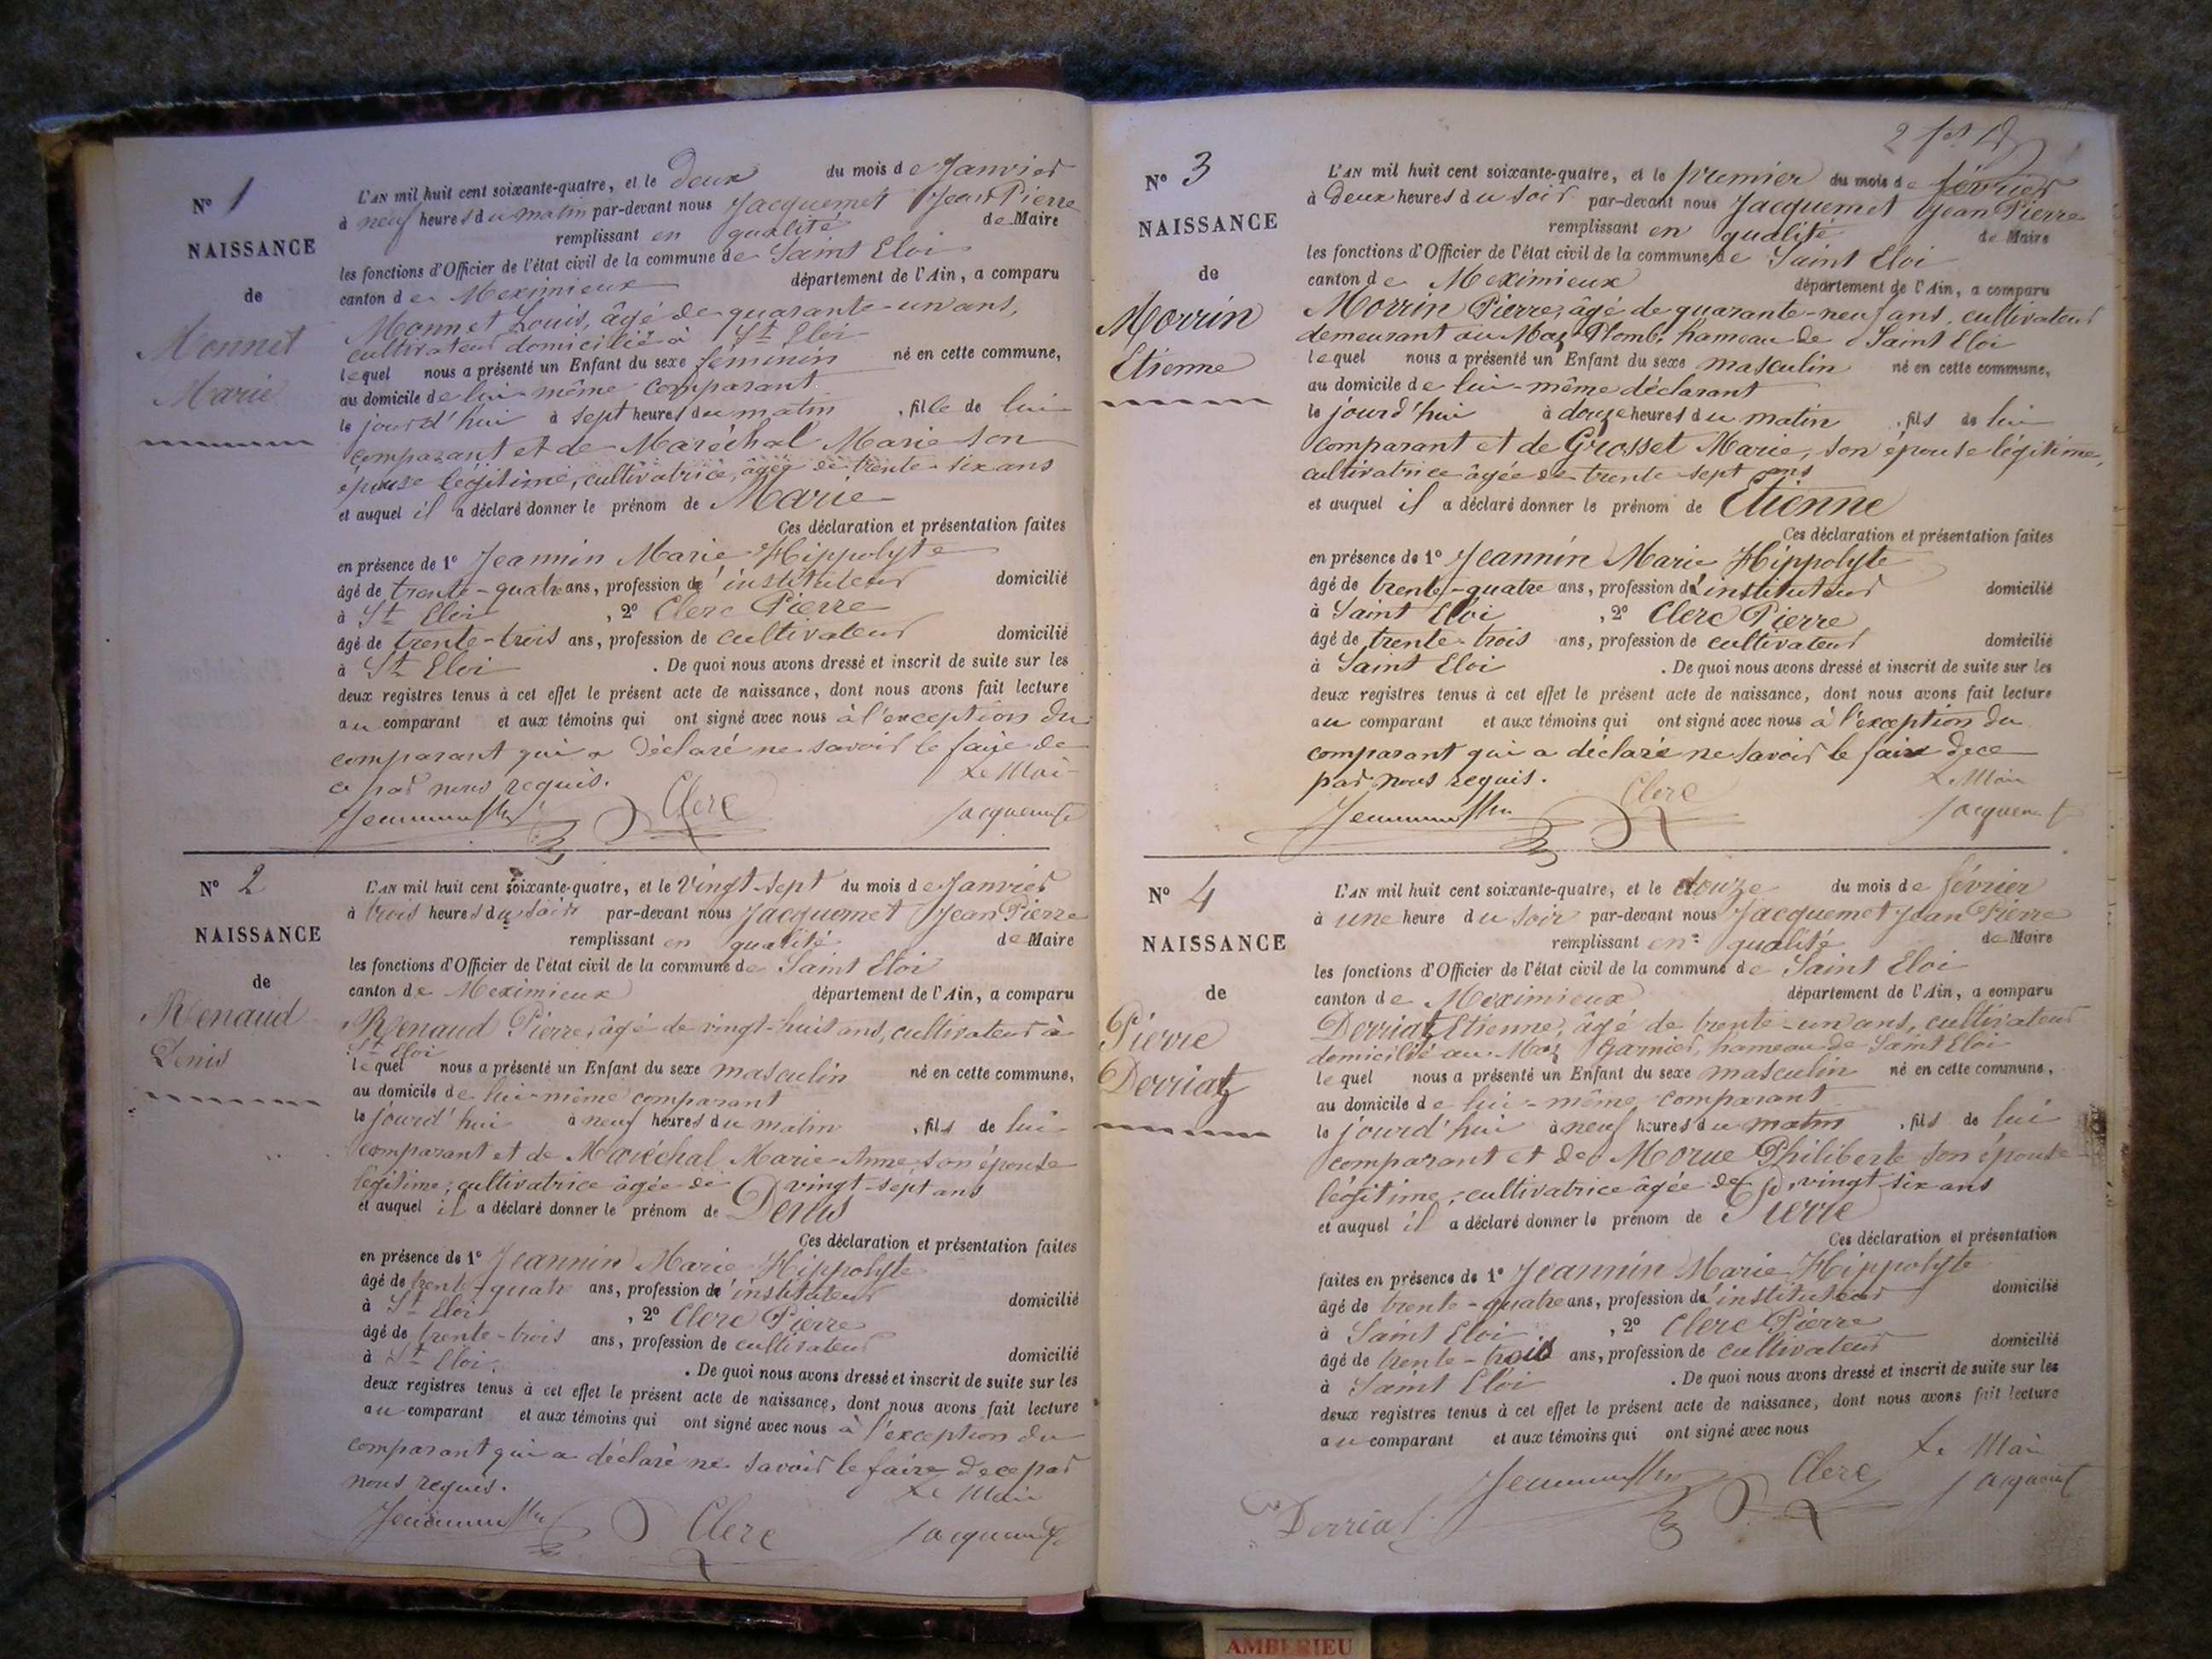 N° 1
NAISSANCE
de
Monnet
Marie
L'AN mil huit cent soixante-quatre, et le deux du mois de Janvier
à neuf heures du matin par-devant nous Jacquemet Jean Pierre
remplissant en qualité de Maire
les fonctions d'Officier de l'état civil de la commune de Saint Eloi
canton de Meximieux département de l'Ain, a comparu
Monnet Louis, âgé de quarante-un ans,
cultivateur domicilié à St Eloi
lequel nous a présenté un Enfant du sexe féminin né en cette commune,
au domicile de lui-même comparant
le jourd'hui à sept heures du matin , fille de lui
comparant et de Maréchal Marie son
épouse légitime, cultivatrice, âgée de trente-six ans
et auquel il a déclaré donner le prénom de Marie
Ces déclaration et présentation faites
en présence de 1° Jeannin Marie Hippolyte
âgé de trente-quatre ans, profession d'instituteur domicilié
à St Eloi , 2° Clerc Pierre
âgé de trente-trois ans, profession de cultivateur domicilié
à St Eloi . De quoi nous avons dressé et inscrit de suite sur les
deux registres tenus à cet effet le présent acte de naissance, dont nous avons fait lecture
au comparant et aux témoins qui ont signé avec nous à l'exception du
comparant qui a déclaré ne savoir le faire de
ce par nous requis.
Le Maire
Clerc
Jacquemet
N° 2
NAISSANCE
de
Renaud
Denis
L'AN mil huit cent soixante-quatre, et le vingt-sept du mois de Janvier
à trois heures du soir par-devant nous Jacquemet Jean Pierre
remplissant en qualité de Maire
les fonctions d'Officier de l'état civil de la commune de Saint Eloi
canton de Meximieux département de l'Ain, a comparu
Renaud Pierre, âgé de vingt-huit ans, cultivateur à
St Eloi
lequel nous a présenté un Enfant du sexe masculin né en cette commune,
au domicile de lui-même comparant
le jourd'hui à neuf heures du matin , fils de lui
comparant et de Maréchal Marie-Anne, son épouse
légitime, cultivatrice âgée de vingt-sept ans
et auquel il a déclaré donner le prénom de Denis
Ces déclaration et présentation faites
en présence de 1° Jeannin Marie Hippolyte
âgé de trente-quatre ans, profession d'instituteur domicilié
à St Eloi , 2° Clerc Pierre
âgé de trente-trois ans, profession de cultivateur domicilié
à St Eloi . De quoi nous avons dressé et inscrit de suite sur les
deux registres tenus à cet effet le présent acte de naissance, dont nous avons fait lecture
au comparant et aux témoins qui ont signé avec nous à l'exception du
comparant qui a déclaré ne savoir le faire de ce par
nous requis.
Le Maire
Clerc
Jacquemet
N° 3
NAISSANCE
de
Morrin
Etienne
L'AN mil huit cent soixante-quatre, et le premier du mois de février
à deux heures du soir par-devant nous Jacquemet Jean Pierre
remplissant en qualité de Maire
les fonctions d'Officier de l'état civil de la commune de Saint Eloi
canton de Meximieux département de l'Ain, a comparu
Morrin Pierre, âgé de quarante-neuf ans, cultivateur
demeurant au Maz Plomb, hameau de Saint Eloi
lequel nous a présenté un Enfant du sexe masculin né en cette commune,
au domicile de lui-même déclarant
le jourd'hui à douze heures du matin , fils de lui
comparant et de Grosset Marie, son épouse légitime,
cultivatrice âgée de trente-sept ans
et auquel il a déclaré donner le prénom de Etienne
Ces déclaration et présentation faites
en présence de 1° Jeannin Marie Hippolyte
âgé de trente-quatre ans, profession d'instituteur domicilié
à Saint Eloi , 2° Clerc Pierre
âgé de trente-trois ans, profession de cultivateur domicilié
à Saint Eloi . De quoi nous avons dressé et inscrit de suite sur les
deux registres tenus à cet effet le présent acte de naissance, dont nous avons fait lecture
au comparant et aux témoins qui ont signé avec nous à l'exception du
comparant qui a déclaré ne savoir le faire de ce
par nous requis.
Le Maire
Clerc
Jacquemet
N° 4
NAISSANCE
de
Pierre
Derriaz
L'AN mil huit cent soixante-quatre, et le douze du mois de février
à une heure du soir par-devant nous Jacquemet Jean Pierre
remplissant en qualité de Maire
les fonctions d'Officier de l'état civil de la commune de Saint Eloi
canton de Meximieux département de l'Ain, a comparu
Derriaz Etienne, âgé de trente-un ans, cultivateur
domicilié au Maz Garnier, hameau de Saint Eloi
lequel nous a présenté un Enfant du sexe masculin né en cette commune,
au domicile de lui-même comparant
le jourd'hui à neuf heures du matin , fils de lui
comparant et de Morue Philiberte son épouse
légitime, cultivatrice âgée de vingt-six ans
et auquel il a déclaré donner le prénom de Pierre
Ces déclaration et présentation
faites en présence de 1° Jeannin Marie Hippolyte
âgé de trente-quatre ans, profession d'instituteur domicilié
à Saint Eloi , 2° Clerc Pierre
âgé de trente-trois ans, profession de cultivateur domicilié
à Saint Eloi . De quoi nous avons dressé et inscrit de suite sur les
deux registres tenus à cet effet le présent acte de naissance, dont nous avons fait lecture
au comparant et aux témoins qui ont signé avec nous
Le Maire
Clerc
Jacquemet
Derriaz
AMBERIEU